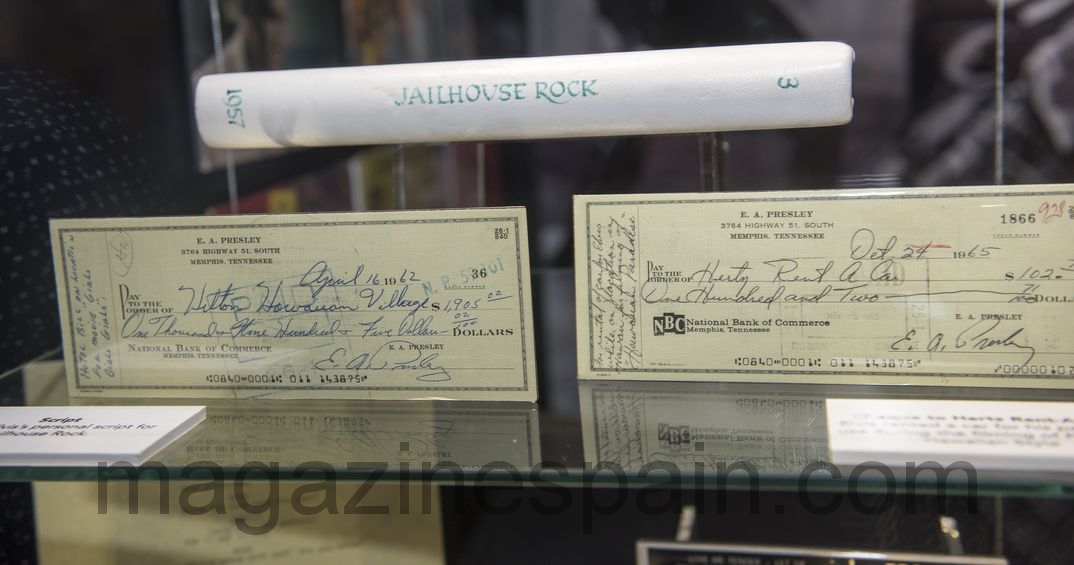 1957 JAILHOUSE ROCK 3
E. A. PRESLEY
3764 HIGHWAY 51, SOUTH
MEMPHIS, TENNESSEE
26-1
840
36
N.P. 55301
April 16 1962
PAY
TO THE
ORDER OF Hilton Hawaiian Village $1,905 02
One Thousand + Nine Hundred + Five Dollars 02/100 DOLLARS
NATIONAL BANK OF COMMERCE
MEMPHIS, TENNESSEE
E. A. PRESLEY
E. A. Presley
⑆0840⑈0001⑆ 011 143875⑈
Hotel Bill on location
for movie "Girls
Girls Girls"
E. A. PRESLEY
3764 HIGHWAY 51, SOUTH
MEMPHIS, TENNESSEE
1866 928
Oct 24 1965
PAY
TO THE
ORDER OF Hertz Rent A Car $102.
One Hundred and Two 71/100 DOLL
NBC National Bank of Commerce
Memphis, Tennessee
E. A. PRESLEY
E. A. Presley
⑆0840⑈0001⑆ 011 143875⑈
"Hawaiian Paradise"
Script
personal script for
lhouse Rock.
to Hertz Rent A
magazinespain.com